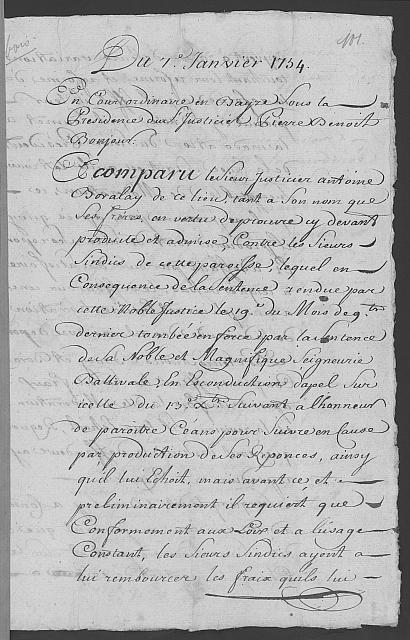 101.
Du 7.e Janvier 1754.
En Cour ordinaire en Bayre Sous la
Presidence du Sr Justicier Pierre Benoit
Bonjour.
A comparu le Sieur Justicier antoine
Boralay de ce lieu, tant a Son nom que
Ses freres, en vertu de procure cy devant
produite et admise, Contre les Sieurs
Sindics de cette paroisse, lequel en
Consequence de la Sentence rendue par
cette Noble Justice le 19.e du Mois de 9.bre
dernier tombée en force par la Sentence
de la Noble et Magnifique Seigneurie
Ballivale, En Esconduction dapel Sur
icelle du 13.e X.bre Suivant a lhonneur
de paroitre Ceans pour Suivre en Cause
par production de Ses Reponces, ainsy
quil lui Echoit, mais avant ce et
preliminairement il requiert que
Conformement aux Loix et a lusage
Constant, les Sieurs Sindics ayent a
lui rembourcer les fraix quils lui